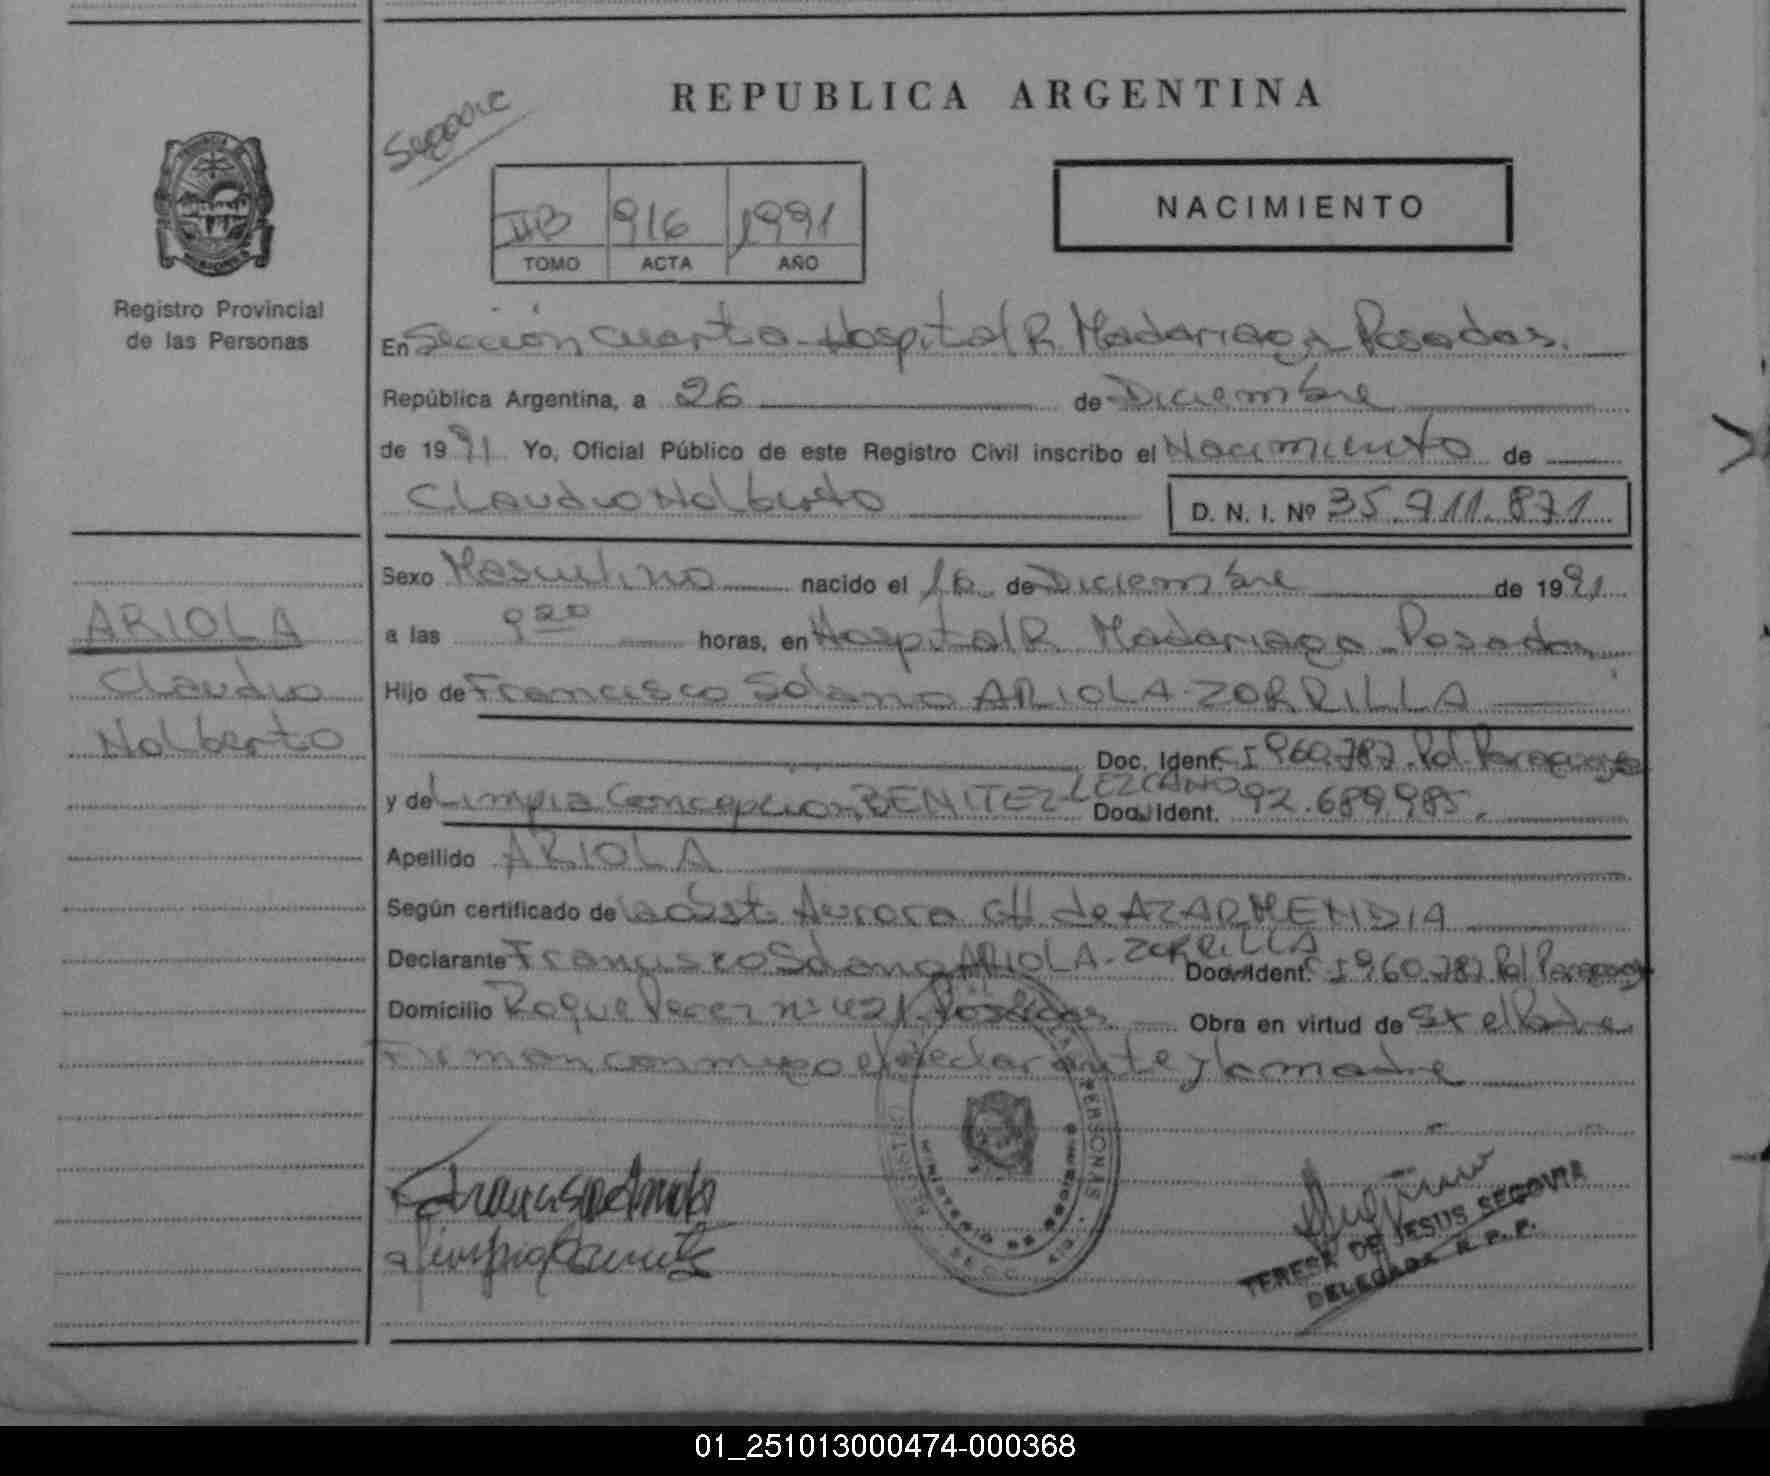 REPUBLICA ARGENTINA
IIB 916 1991
TOMO ACTA AÑO
NACIMIENTO
Registro Provincial
de las Personas
En Sección Cuarta Hospital R. Madariaga Posadas.
República Argentina, a 26 de Diciembre
de 1991 Yo, Oficial Público de este Registro Civil inscribo el Nacimiento de
Claudio Nolberto D. N. I. Nº 35.911.871
Sexo Masculino nacido el 16 de Diciembre de 1991
a las 9 20 horas, en Hospital R. Madariaga Posadas
Hijo de Francisco Solano ARIOLA ZORRILLA
Doc. Ident. C.I 960.787 Pol Paraguay
y de Limpia Concepcion BENITEZ LEZCANO Doc. Ident. 92.689.985.
Apellido ARIOLA
Según certificado de la obst. Aurora GH de AZARMENDIA
Declarante Francisco Solano ARIOLA-ZORRILLA Doc. Ident. C.I 960.787 Pol Paraguay
Domicilio Roque Perez nº 421 Posadas Obra en virtud de ser el Padre
Firman conmigo el declarante y la madre
ARIOLA
Claudio
Nolberto
PERSONAS
MINISTERIO DE GOBIERNO
TERESA DE JESUS SEGOVIA
DELEGADA R. P. P.
01_251013000474-000368